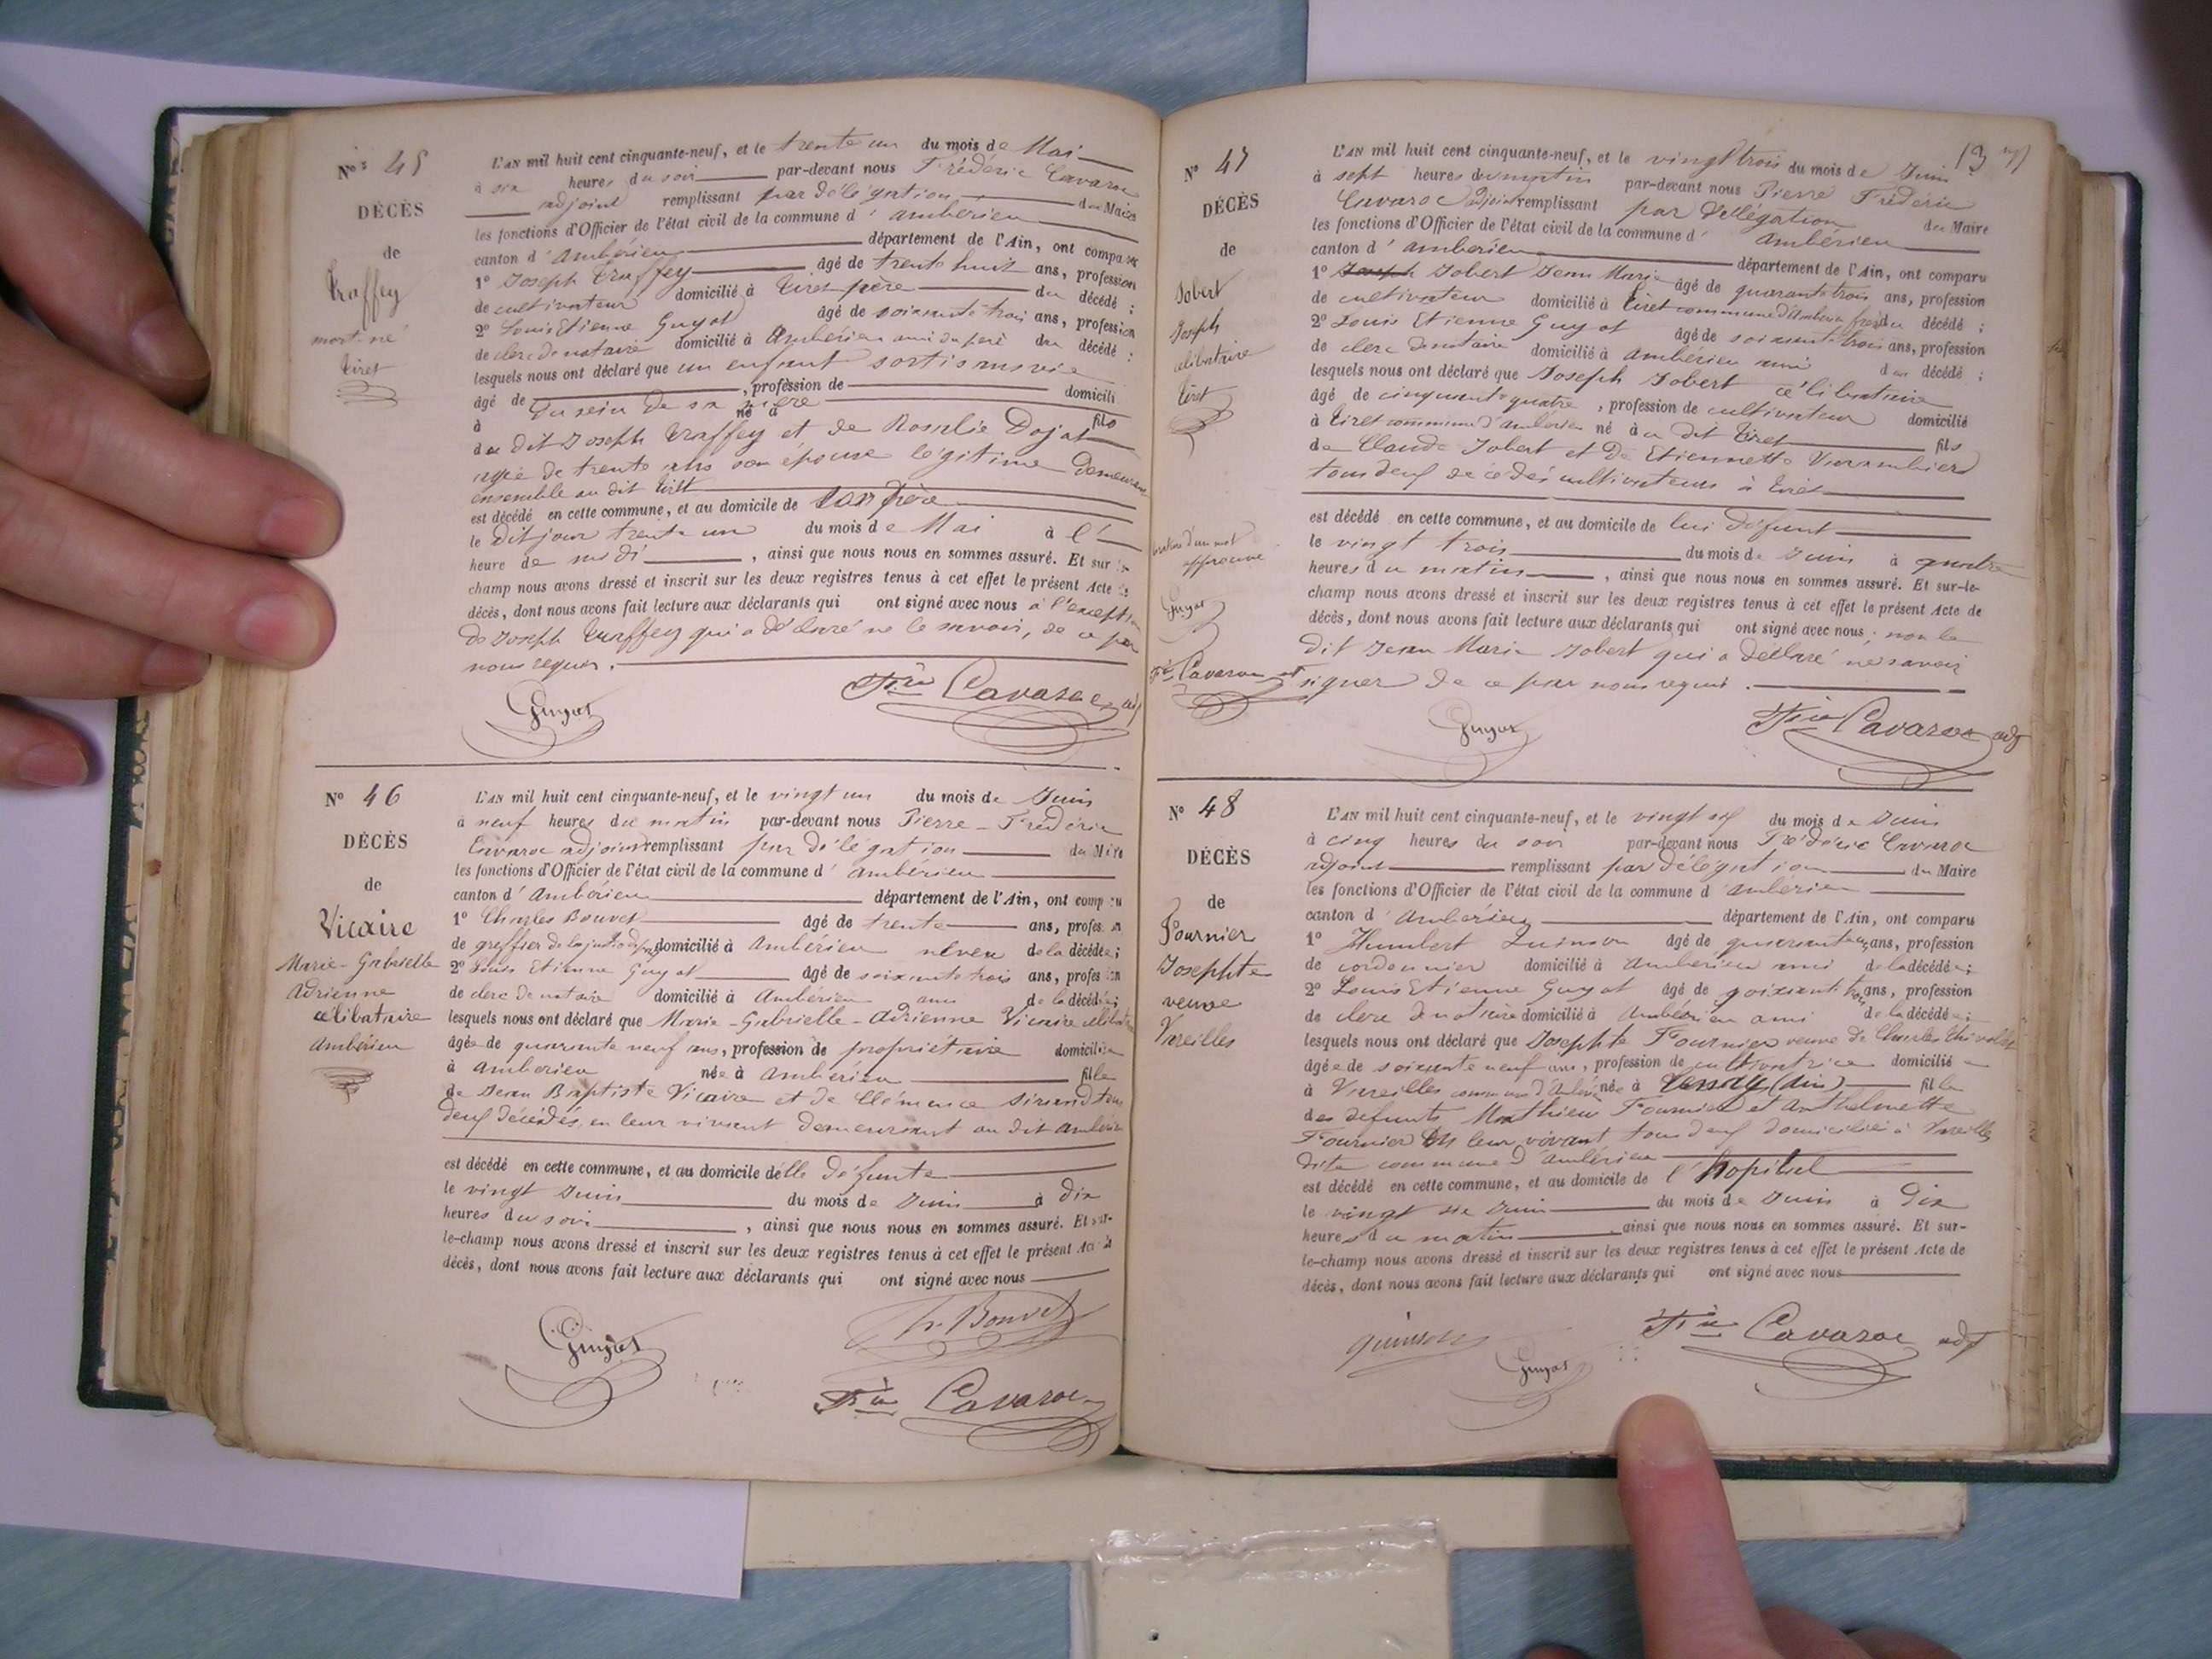 N° 45
DÉCÈS
de
Truffey
mort-né
Tiret
L'AN mil huit cent cinquante-neuf, et le trente un du mois de Mai
à six heures du soir par-devant nous Frédéric Cavaroc
adjoint remplissant par délégation du Maire
les fonctions d'Officier de l'état civil de la commune d'ambérieu
canton d'ambérieu département de l'Ain, ont comparu
1° Joseph Truffey âgé de trente huit ans, profession
de cultivateur domicilié à Tiret père du décédé ;
2° Louis Etienne Guyot âgé de soixante trois ans, profession
de clerc de notaire domicilié à Ambérieu ami du père du décédé ;
lesquels nous ont déclaré que un enfant sorti sans vie
âgé de , profession de domicili
du sein de sa mère
à né à fils
du dit Joseph Truffey et de Rosalie Dojat
agée de trente ans son épouse légitime demeurant
ensemble au dit Tiret
est décédé en cette commune, et au domicile de son père
le dit jour trente un du mois de Mai à l'
heure de midi , ainsi que nous nous en sommes assuré. Et sur
champ nous avons dressé et inscrit sur les deux registres tenus à cet effet le présent Acte de
décès, dont nous avons fait lecture aux déclarants qui ont signé avec nous à l'exception
de Joseph Truffey qui a déclaré ne le savoir, de ce par
nous requis.
Guyot
Fric Cavaroc adj
N° 46
DÉCÈS
de
Vicaire
Marie-Gabrielle
Adrienne
célibataire
Ambérieu
L'AN mil huit cent cinquante-neuf, et le vingt un du mois de Juin
à neuf heures du matin par-devant nous Pierre-Frédéric
Cavaroc adjoint remplissant par délégation du Maire
les fonctions d'Officier de l'état civil de la commune d'ambérieu
canton d'Ambérieu département de l'Ain, ont comparu
1° Charles Bouvet âgé de trente ans, profession
de greffier de la justice de paix domicilié à Ambérieu neveu de la décédée ;
2° Louis Etienne Guyot âgé de soixante trois ans, profession
de clerc de notaire domicilié à Ambérieu ami de la décédée ;
lesquels nous ont déclaré que Marie-Gabrielle-Adrienne Vicaire célibataire
âgée de quarante neuf ans, profession de propriétaire domiciliée
à Ambérieu née à Ambérieu fille
de Jean Baptiste Vicaire et de Clémence Sirand tous
deux décédés, en leur vivant demeurant au dit Ambérieu
est décédé en cette commune, et au domicile d'elle défunte
le vingt Juin du mois de Juin à dix
heures du soir , ainsi que nous nous en sommes assuré. Et sur-
le-champ nous avons dressé et inscrit sur les deux registres tenus à cet effet le présent Acte de
décès, dont nous avons fait lecture aux déclarants qui ont signé avec nous
Guyot
Ch. Bouvet
Fric Cavaroc
13
N° 47
DÉCÈS
de
Jobert
Joseph
célibataire
Tiret
d'un mot
approuvé
Guyot
Fric Cavaroc
L'AN mil huit cent cinquante-neuf, et le vingt trois du mois de Juin
à sept heures du matin par-devant nous Pierre Frédéric
Cavaroc adjoint remplissant par délégation du Maire
les fonctions d'Officier de l'état civil de la commune d'Ambérieu
canton d'ambérieu département de l'Ain, ont comparu
1° Joseph Jobert Jean Marie âgé de quarante trois ans, profession
de cultivateur domicilié à Tiret commune d'Ambérieu frère du décédé ;
2° Louis Etienne Guyot âgé de soixante trois ans, profession
de clerc de notaire domicilié à Ambérieu ami du décédé ;
lesquels nous ont déclaré que Joseph Jobert célibataire
âgé de cinquante quatre , profession de cultivateur domicilié
à Tiret commune d'Ambérieu né à u dit Tiret fils
de Claude Jobert et de Etiennette
tous deux décédés cultivateurs à Tiret
est décédé en cette commune, et au domicile de lui défunt
le vingt trois du mois de Juin à quatre
heures du matin , ainsi que nous nous en sommes assuré. Et sur-le-
champ nous avons dressé et inscrit sur les deux registres tenus à cet effet le présent Acte de
décès, dont nous avons fait lecture aux déclarants qui ont signé avec nous ; non le
dit Jean Marie Jobert qui a déclaré ne savoir
signer de ce par nous requis.
Guyot
Fric Cavaroc adj
N° 48
DÉCÈS
de
Fournier
Josephte
veuve
Vareilles
L'AN mil huit cent cinquante-neuf, et le vingt six du mois de Juin
à cinq heures du soir par-devant nous Frédéric Cavaroc
adjoint remplissant par délégation du Maire
les fonctions d'Officier de l'état civil de la commune d'ambérieu
canton d'Ambérieu département de l'Ain, ont comparu
1° Humbert Quinson âgé de quarante ans, profession
de cordonnier domicilié à Ambérieu ami de la décédée ;
2° Louis Etienne Guyot âgé de soixante trois ans, profession
de clerc de notaire domicilié à Ambérieu ami de la décédée ;
lesquels nous ont déclaré que Josephte Fournier veuve de Charles
âgée de soixante neuf ans, profession de cultivatrice domicilié
à Vareilles commune d'Ambérieu née à (Ain) fille
des défunts Mathieu Fournier et Anthelmette
Fournier en leur vivant tous deux domiciliés à Vareilles
dite commune d'ambérieu
est décédé en cette commune, et au domicile de l'hopital
le vingt six Juin du mois de Juin à dix
heures du matin , ainsi que nous nous en sommes assuré. Et sur-
le-champ nous avons dressé et inscrit sur les deux registres tenus à cet effet le présent Acte de
décès, dont nous avons fait lecture aux déclarants qui ont signé avec nous
Quinson
Guyot
Fric Cavaroc adj